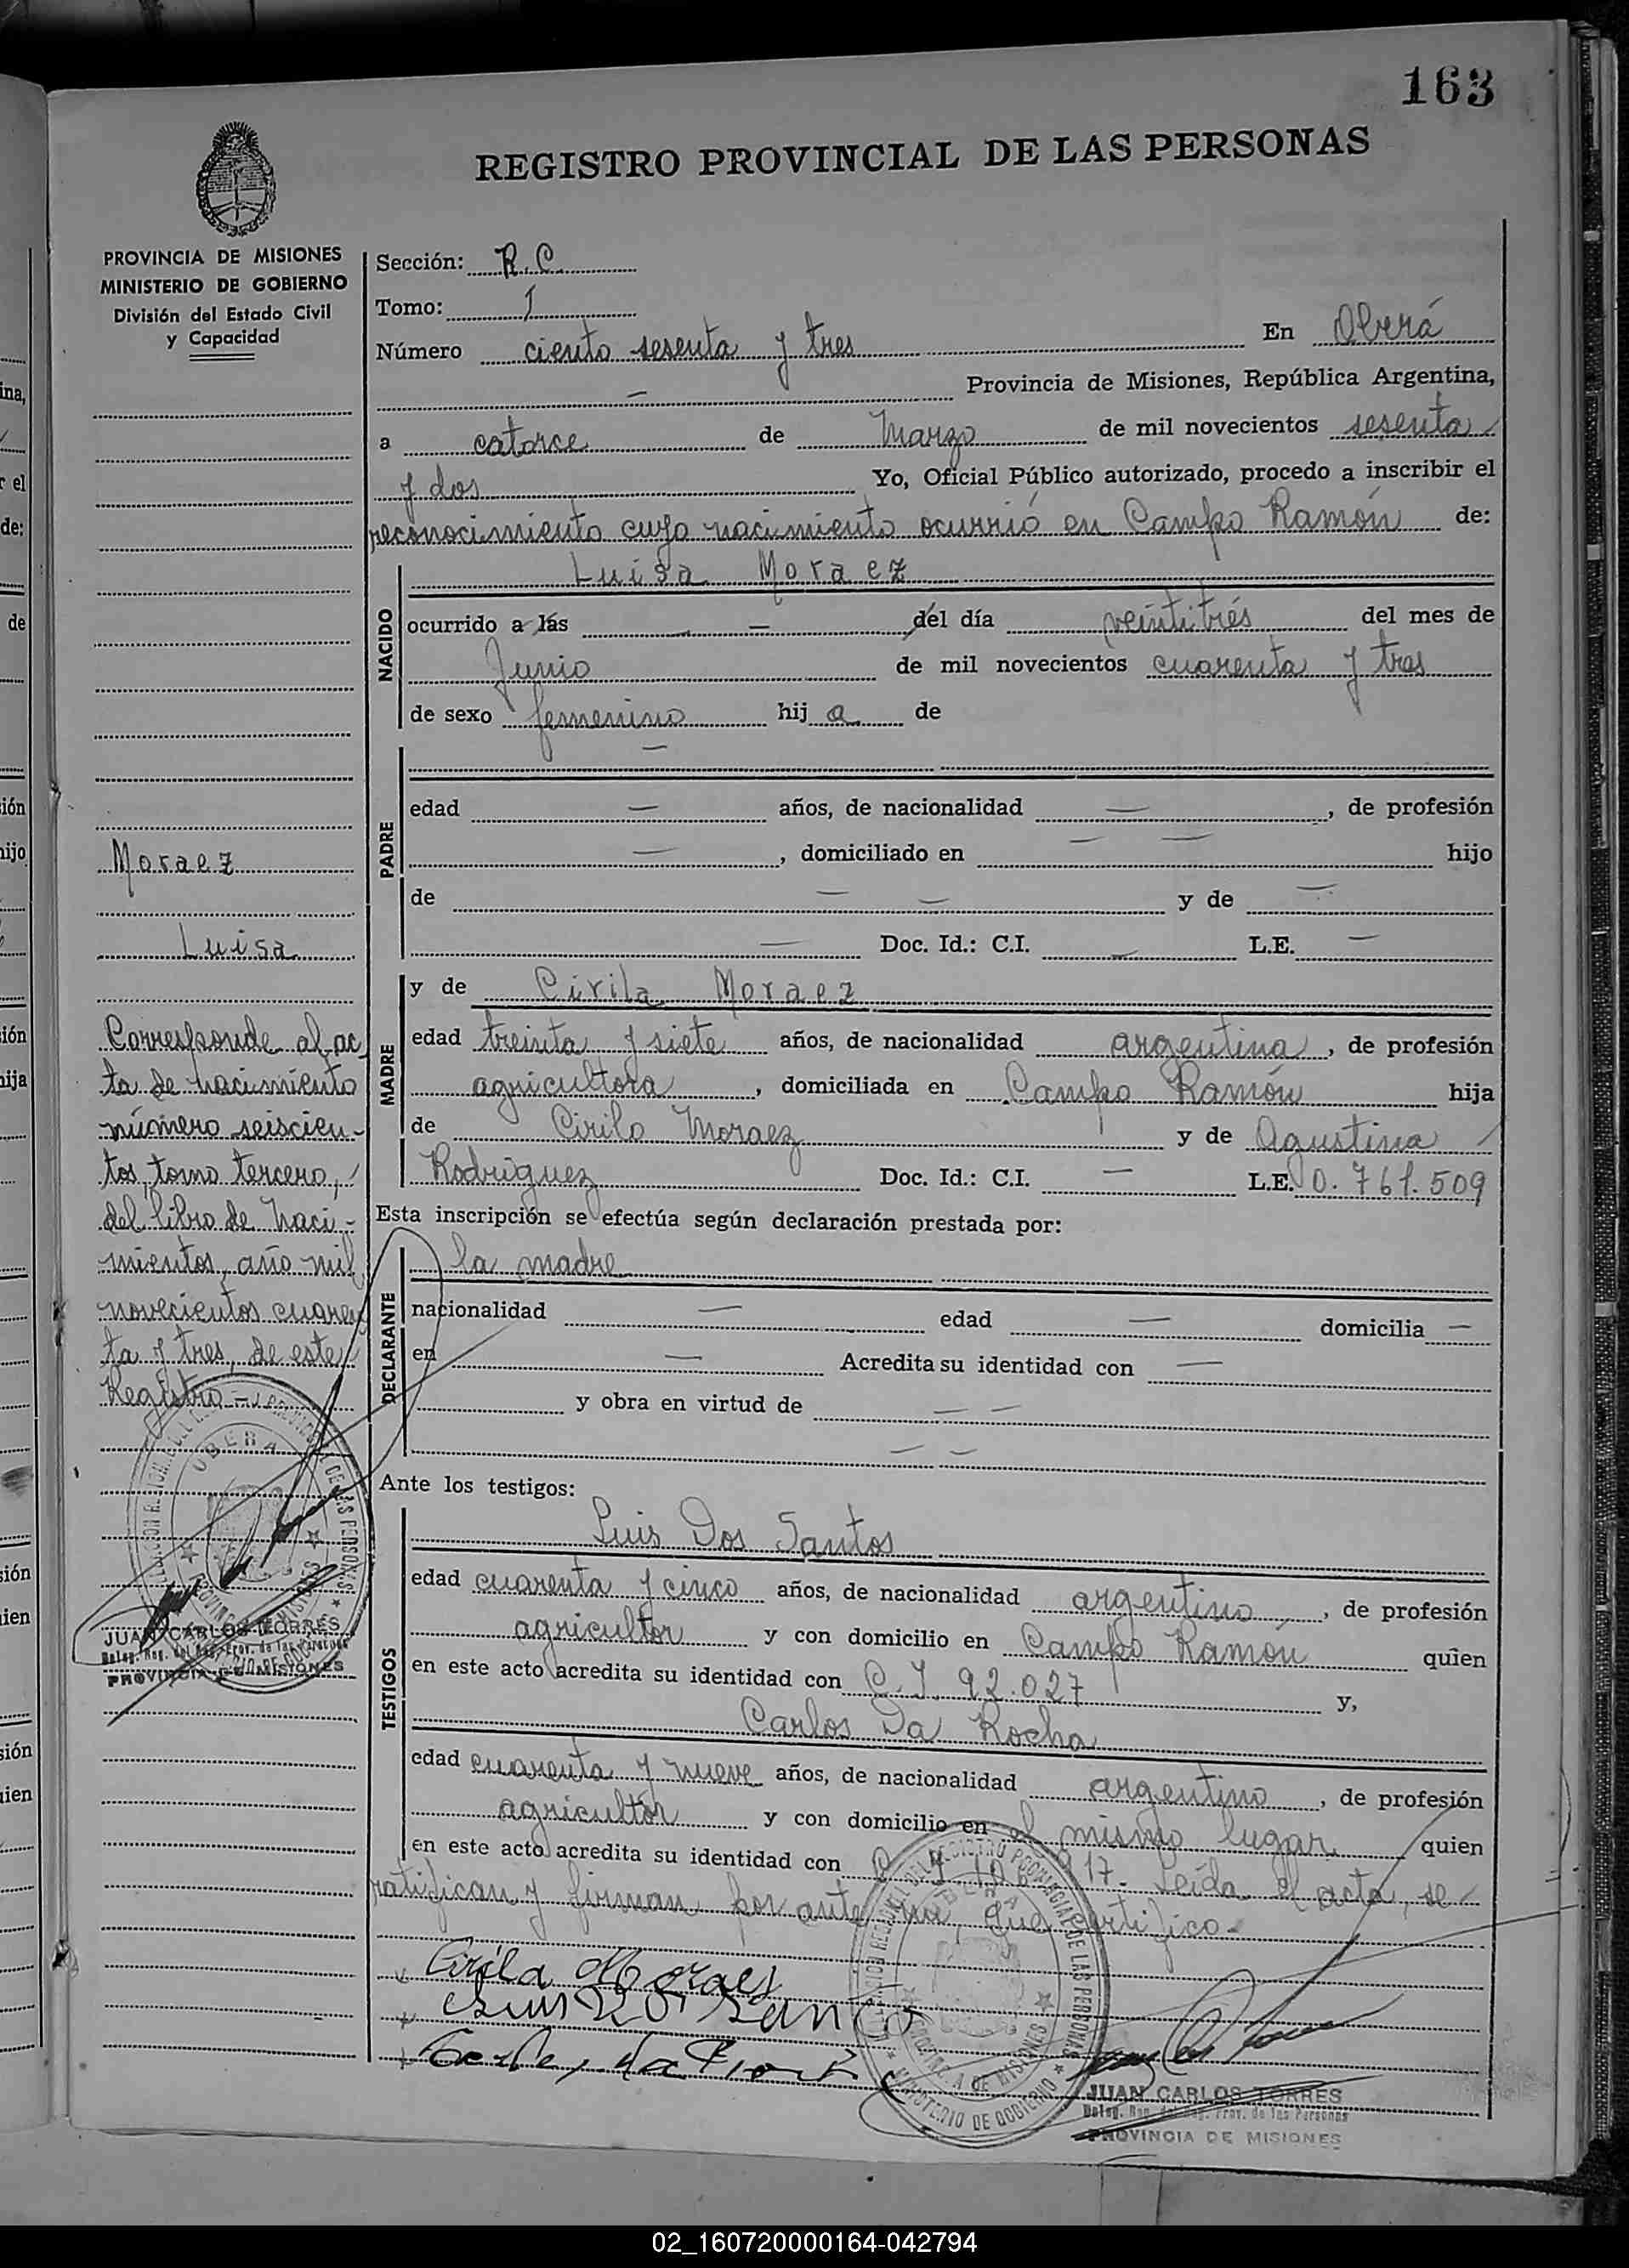 163
REGISTRO PROVINCIAL DE LAS PERSONAS
PROVINCIA DE MISIONES
MINISTERIO DE GOBIERNO
División del Estado Civil
y Capacidad
Sección: R. C.
Tomo: 1
Número ciento sesenta y tres En Oberá
— Provincia de Misiones, República Argentina,
a catorce de Marzo de mil novecientos sesenta
y dos Yo, Oficial Público autorizado, procedo a inscribir el
reconocimiento cuyo nacimiento ocurrió en Campo Ramón de:
Luisa Moraez
NACIDO
ocurrido a las — del día veintitrés del mes de
Junio de mil novecientos cuarenta y tres
de sexo femenino hij a de
—
PADRE
edad — años, de nacionalidad — , de profesión
— , domiciliado en — — hijo
de — — y de —
— Doc. Id.: C.I. — L.E. —
MADRE
y de Cirila Moraez
edad treinta y siete años, de nacionalidad argentina , de profesión
agricultora , domiciliada en Campo Ramón hija
de Cirilo Moraez y de Agustina
Rodriguez Doc. Id.: C.I. — L.E. 0.761.509
Esta inscripción se efectúa según declaración prestada por:
DECLARANTE
la madre
nacionalidad — edad — domicilia —
en — Acredita su identidad con —
y obra en virtud de — —
— —
Ante los testigos:
TESTIGOS
Luis Dos Santos
edad cuarenta y cinco años, de nacionalidad argentino , de profesión
agricultor y con domicilio en Campo Ramón quien
en este acto acredita su identidad con C. I. 92.027 y,
Carlos Da Rocha
edad cuarenta y nueve años, de nacionalidad argentino , de profesión
agricultor y con domicilio en el mismo lugar quien
en este acto acredita su identidad con 17. Leída el acta, se
ratifican y firman por ante mi, que certifico.-
Cirila Moraes
Luis
JUAN CARLOS TORRES
Deleg. Reg. del Reg. Prov. de las Personas
PROVINCIA DE MISIONES
Moraez
Luisa
Corresponde al ac
ta de nacimiento
número seiscien-
tos, tomo tercero,
del libro de naci-
mientos, año mil
novecientos cuaren
ta y tres, de este
Registro.-
OBERA
PROVINCIA DE MISIONES
JUAN CARLOS TORRES
Deleg. Reg. del Reg. Prov. de las Personas
PROVINCIA DE MISIONES
OBERA
PROVINCIA DE MISIONES
MINISTERIO DE GOBIERNO
ina,
r el
de:
de
ión
hijo
ión
hija
sión
ien
sión
ien
02_160720000164-042794